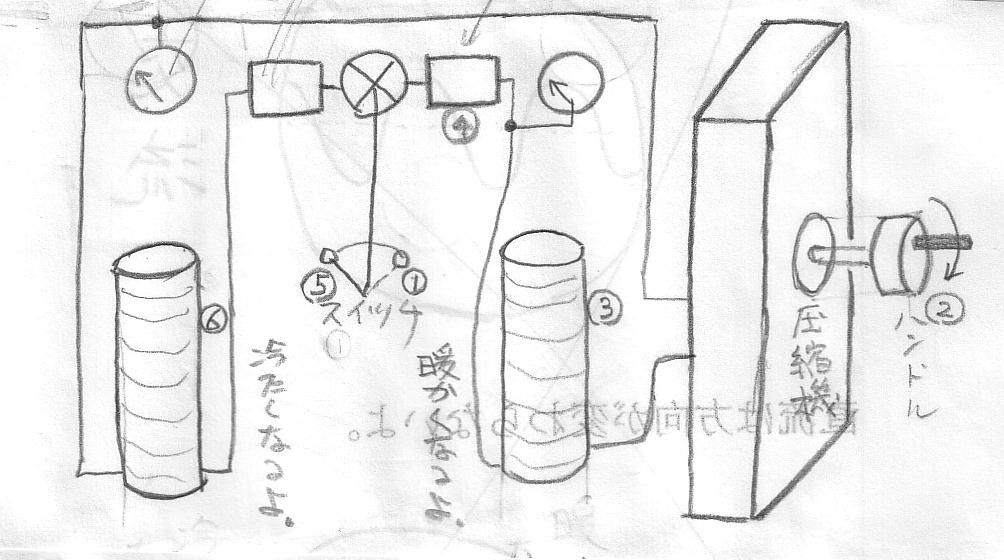 ④
⑤
①
スイッチ
①
⑥
冷たくなるよ。
暖かくなるよ。
③
圧縮機
②
ハンドル
直流は方向が変わらないよ。